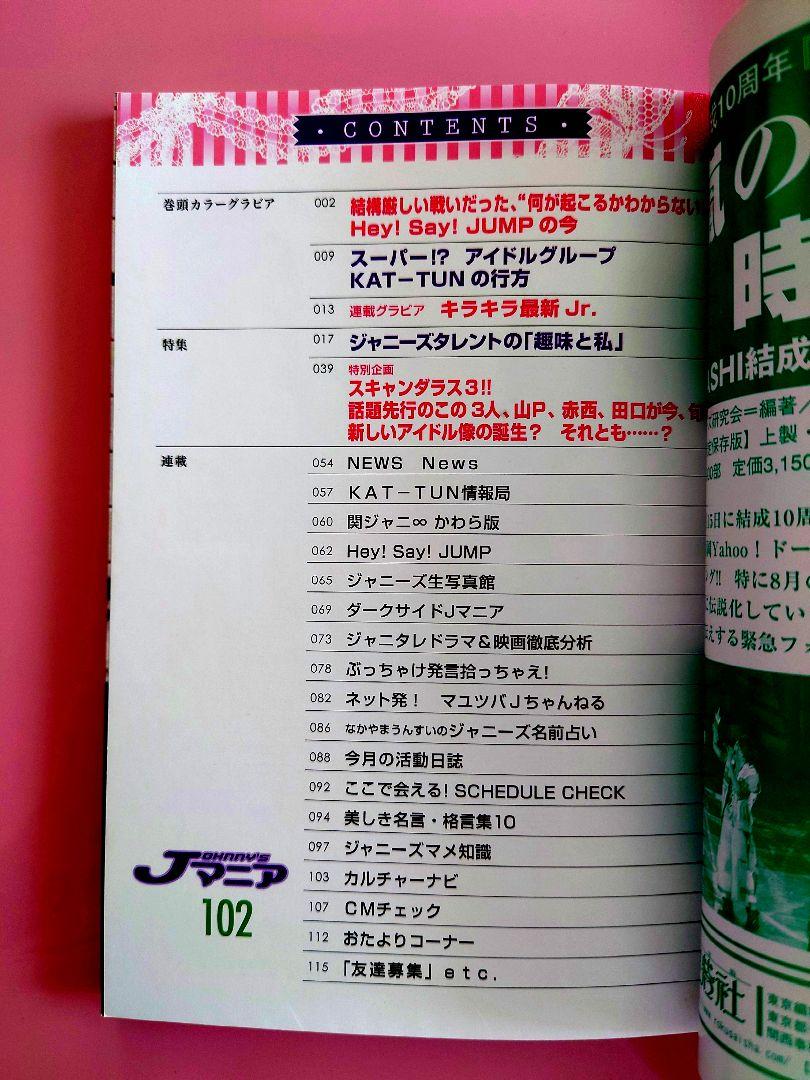 ・CONTENTS・
巻頭カラーグラビア
002 結構厳しい戦いだった、“何が起こるかわからない
Hey! Say! JUMPの今
009 スーパー!? アイドルグループ
KAT－TUNの行方
013 連載グラビア キラキラ最新Jr.
特集
017 ジャニーズタレントの「趣味と私」
039 特別企画
スキャンダラス3!!
話題先行のこの3人、山P、赤西、田口が今、旬
新しいアイドル像の誕生？ それとも……？
連載
054 NEWS News
057 KAT－TUN情報局
060 関ジャニ∞かわら版
062 Hey! Say! JUMP
065 ジャニーズ生写真館
069 ダークサイドJマニア
073 ジャニタレドラマ＆映画徹底分析
078 ぶっちゃけ発言拾っちゃえ!
082 ネット発！ マユツバJちゃんねる
086 なかやまうんすいのジャニーズ名前占い
088 今月の活動日誌
092 ここで会える! SCHEDULE CHECK
094 美しき名言・格言集10
097 ジャニーズマメ知識
103 カルチャーナビ
107 CMチェック
112 おたよりコーナー
115 「友達募集」etc.
JOHNNY'S
マニア
102
10周年
嵐の
時
SHI結成
研究会＝編著／
保存版】上製・
00部 定価3,150
5日に結成10周
Yahoo！ドー
グ!! 特に8月の
伝説化してい
えする緊急フォ
社
東京
東京都
関西
www.rokusaisha.com/